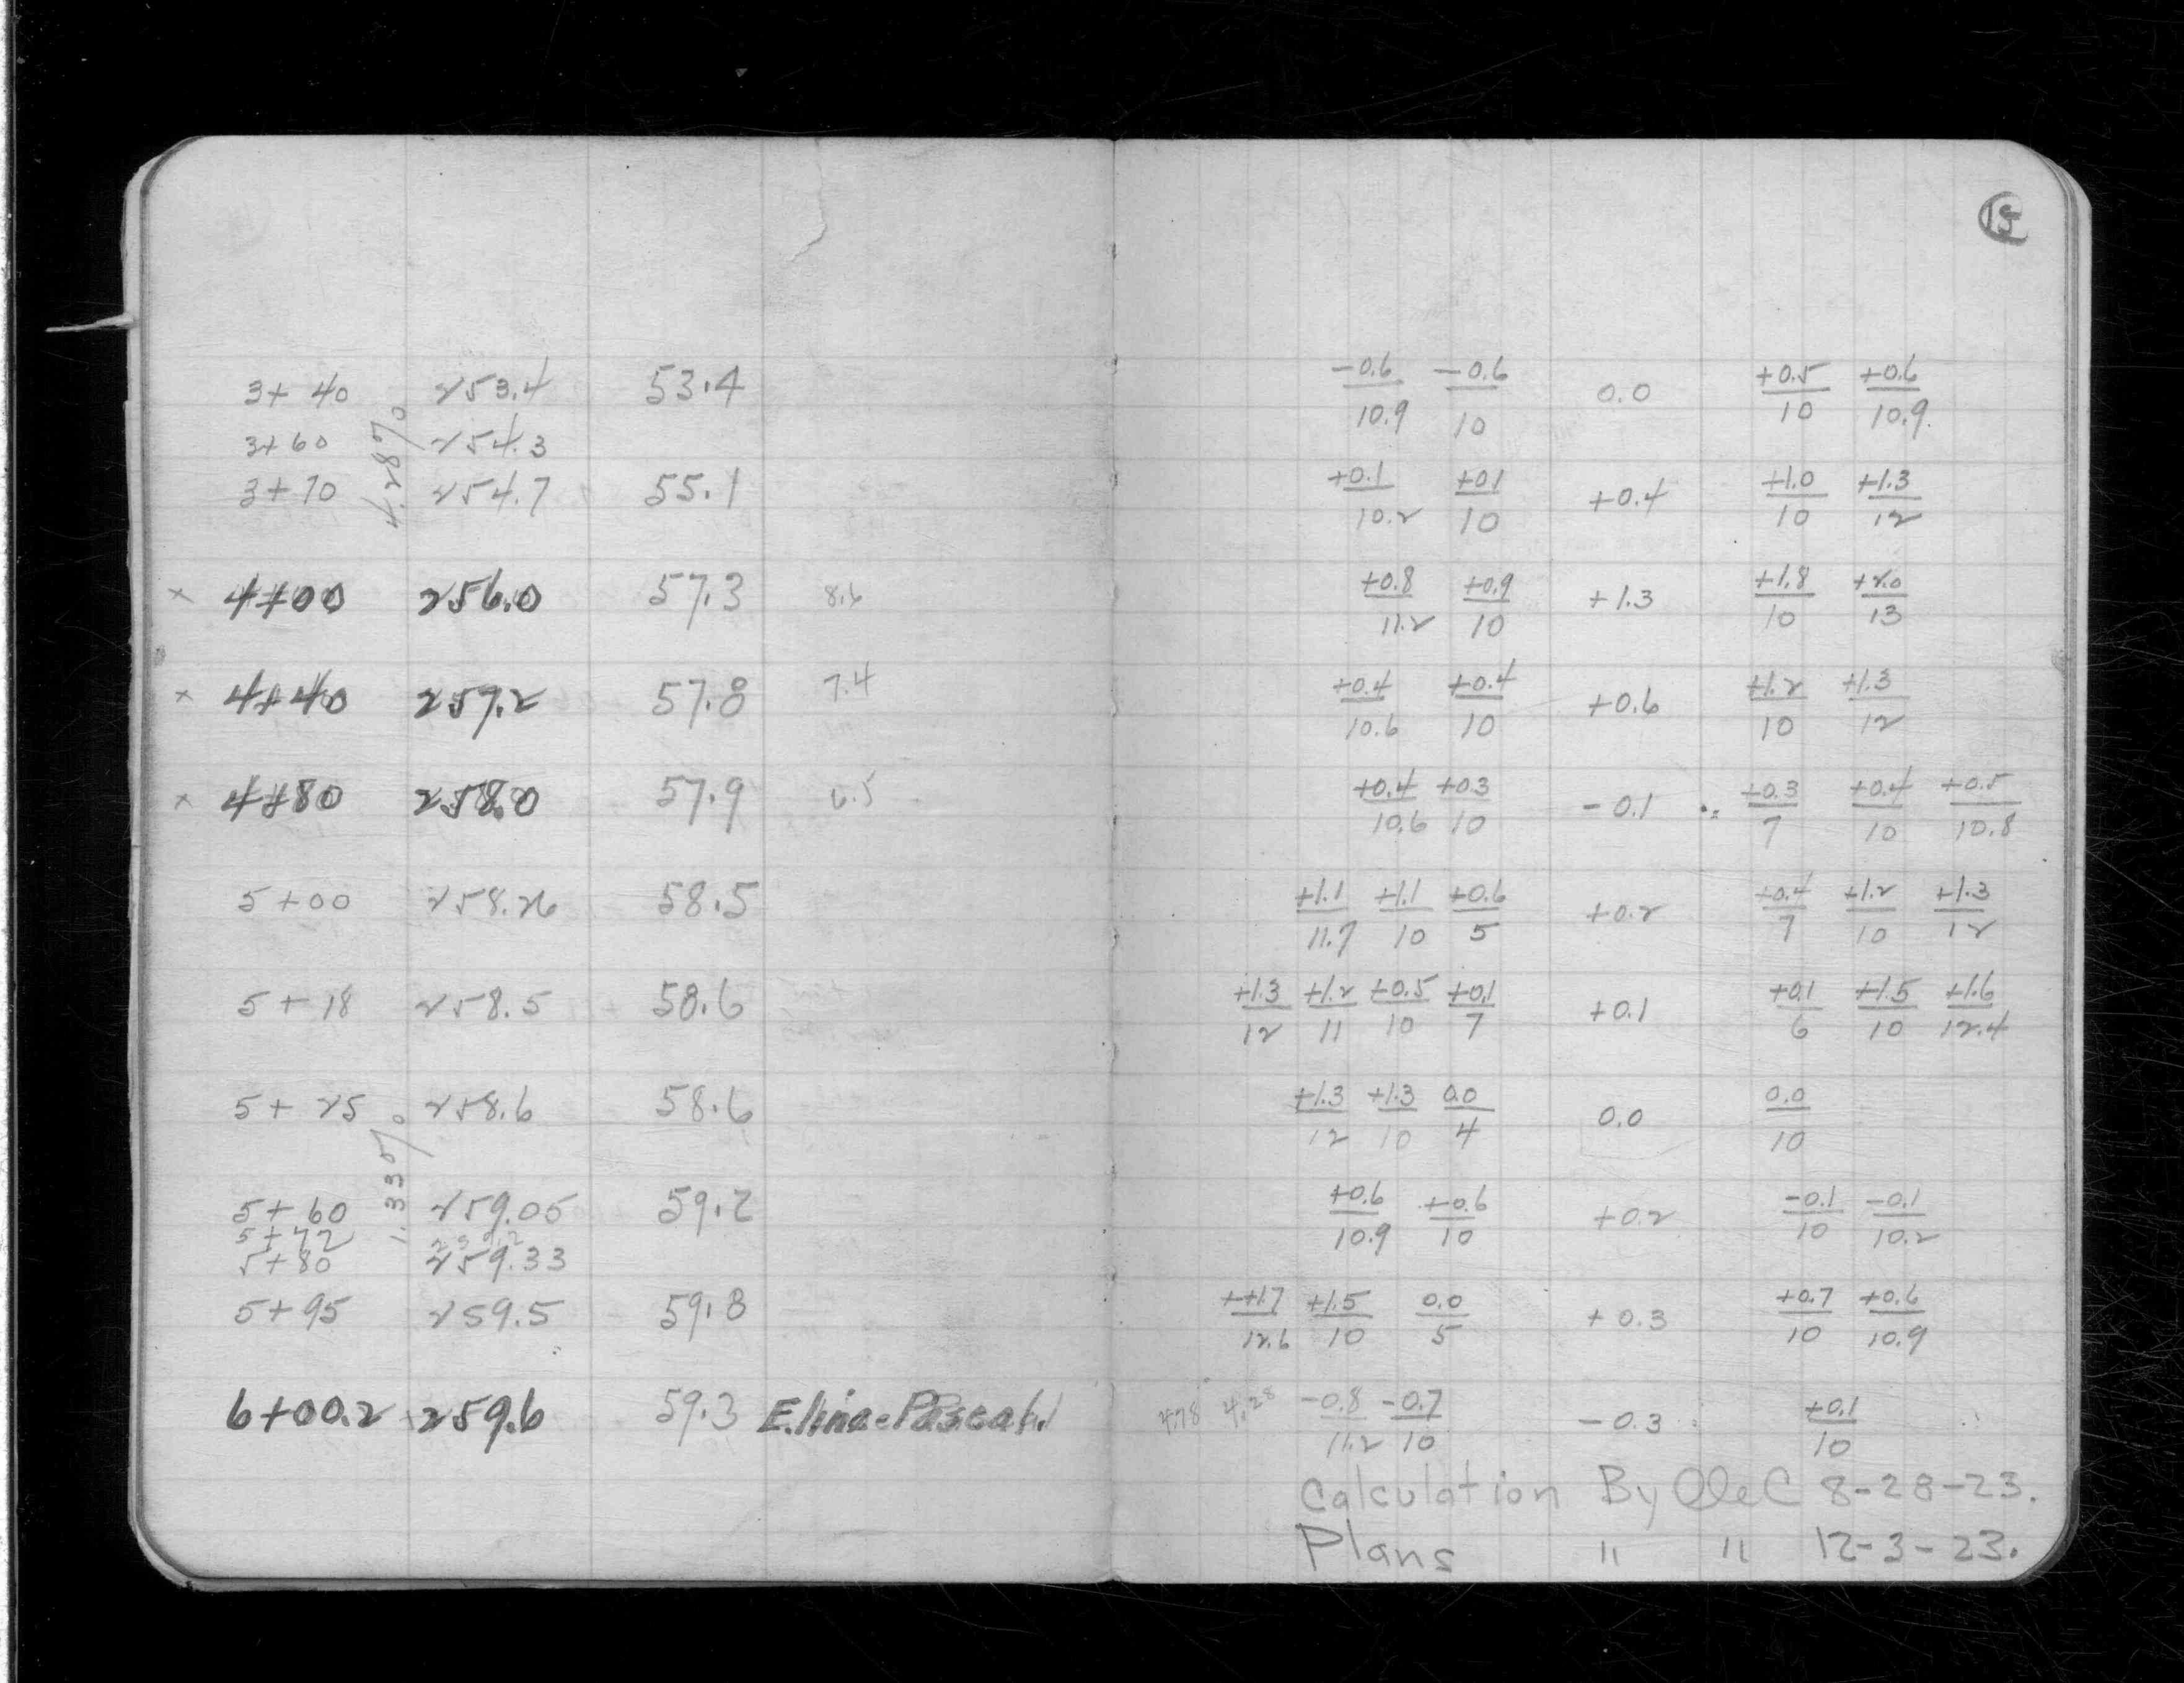 15
3+40 253.4 53.4 -0.6/10.9 -0.6/10 0.0 +0.5/10 +0.6/10.9
3+60 254.3
4.28%
3+70 254.7 55.1 +0.1/10.2 +0.1/10 +0.4 +1.0/10 +1.3/12
x 4+00 256.0 57.3 8.6 +0.8/11.2 +0.9/10 +1.3 +1.8/10 +2.0/13
x 4+40 257.2 57.8 7.4 +0.4/10.6 +0.4/10 +0.6 +1.2/10 +1.3/12
x 4+80 258.0 57.9 6.5 +0.4/10.6 +0.3/10 -0.1 +0.3/7 +0.4/10 +0.5/10.8
5+00 258.26 58.5 +1.1/11.7 +1.1/10 +0.6/5 +0.2 +0.4/7 +1.2/10 +1.3/12
5+18 258.5 58.6 +1.3/12 +1.2/11 +0.5/10 +0.1/7 +0.1 +0.1/6 +1.5/10 +1.6/12.4
5+25 258.6 58.6 +1.3/12 +1.3/10 0.0/4 0.0 0.0/10
1.33%
5+60 259.05 59.2 +0.6/10.9 +0.6/10 +0.2 -0.1/10 -0.1/10.2
5+72
5+80 259.33
5+95 259.5 59.8 ++1.7/12.6 +1.5/10 0.0/5 +0.3 +0.7/10 +0.6/10.9
6+00.2 259.6 59.3 E.line 4.28 -0.8/11.2 -0.7/10 -0.3 +0.1/10
Calculation By OleC 8-28-23.
Plans " " 12-3-23.